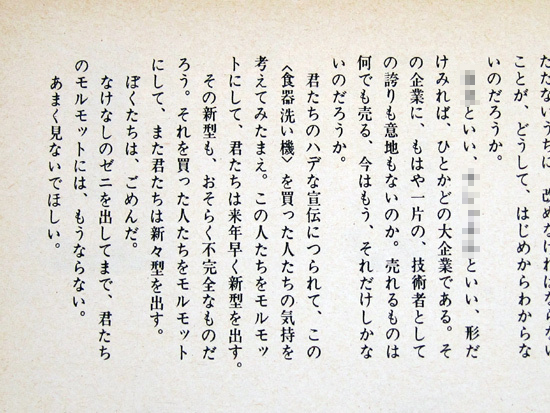 たたないうちに、改めなければならない
ことが、どうして、はじめからわからな
いのだろうか。
といい、
といい、形だ
けみれば、ひとかどの大企業である。そ
の企業に、もはや一片の、技術者として
の誇りも意地もないのか。売れるものは
何でも売る、今はもう、それだけしかな
いのだろうか。
君たちのハデな宣伝につられて、この
〈食器洗い機〉を買った人たちの気持を
考えてみたまえ。この人たちをモルモッ
トにして、君たちは来年早く新型を出す。
その新型も、おそらく不完全なものだ
ろう。それを買った人たちをモルモット
にして、また君たちは新々型を出す。
ぼくたちは、ごめんだ。
なけなしのゼニを出してまで、君たち
のモルモットには、もうならない。
あまく見ないでほしい。